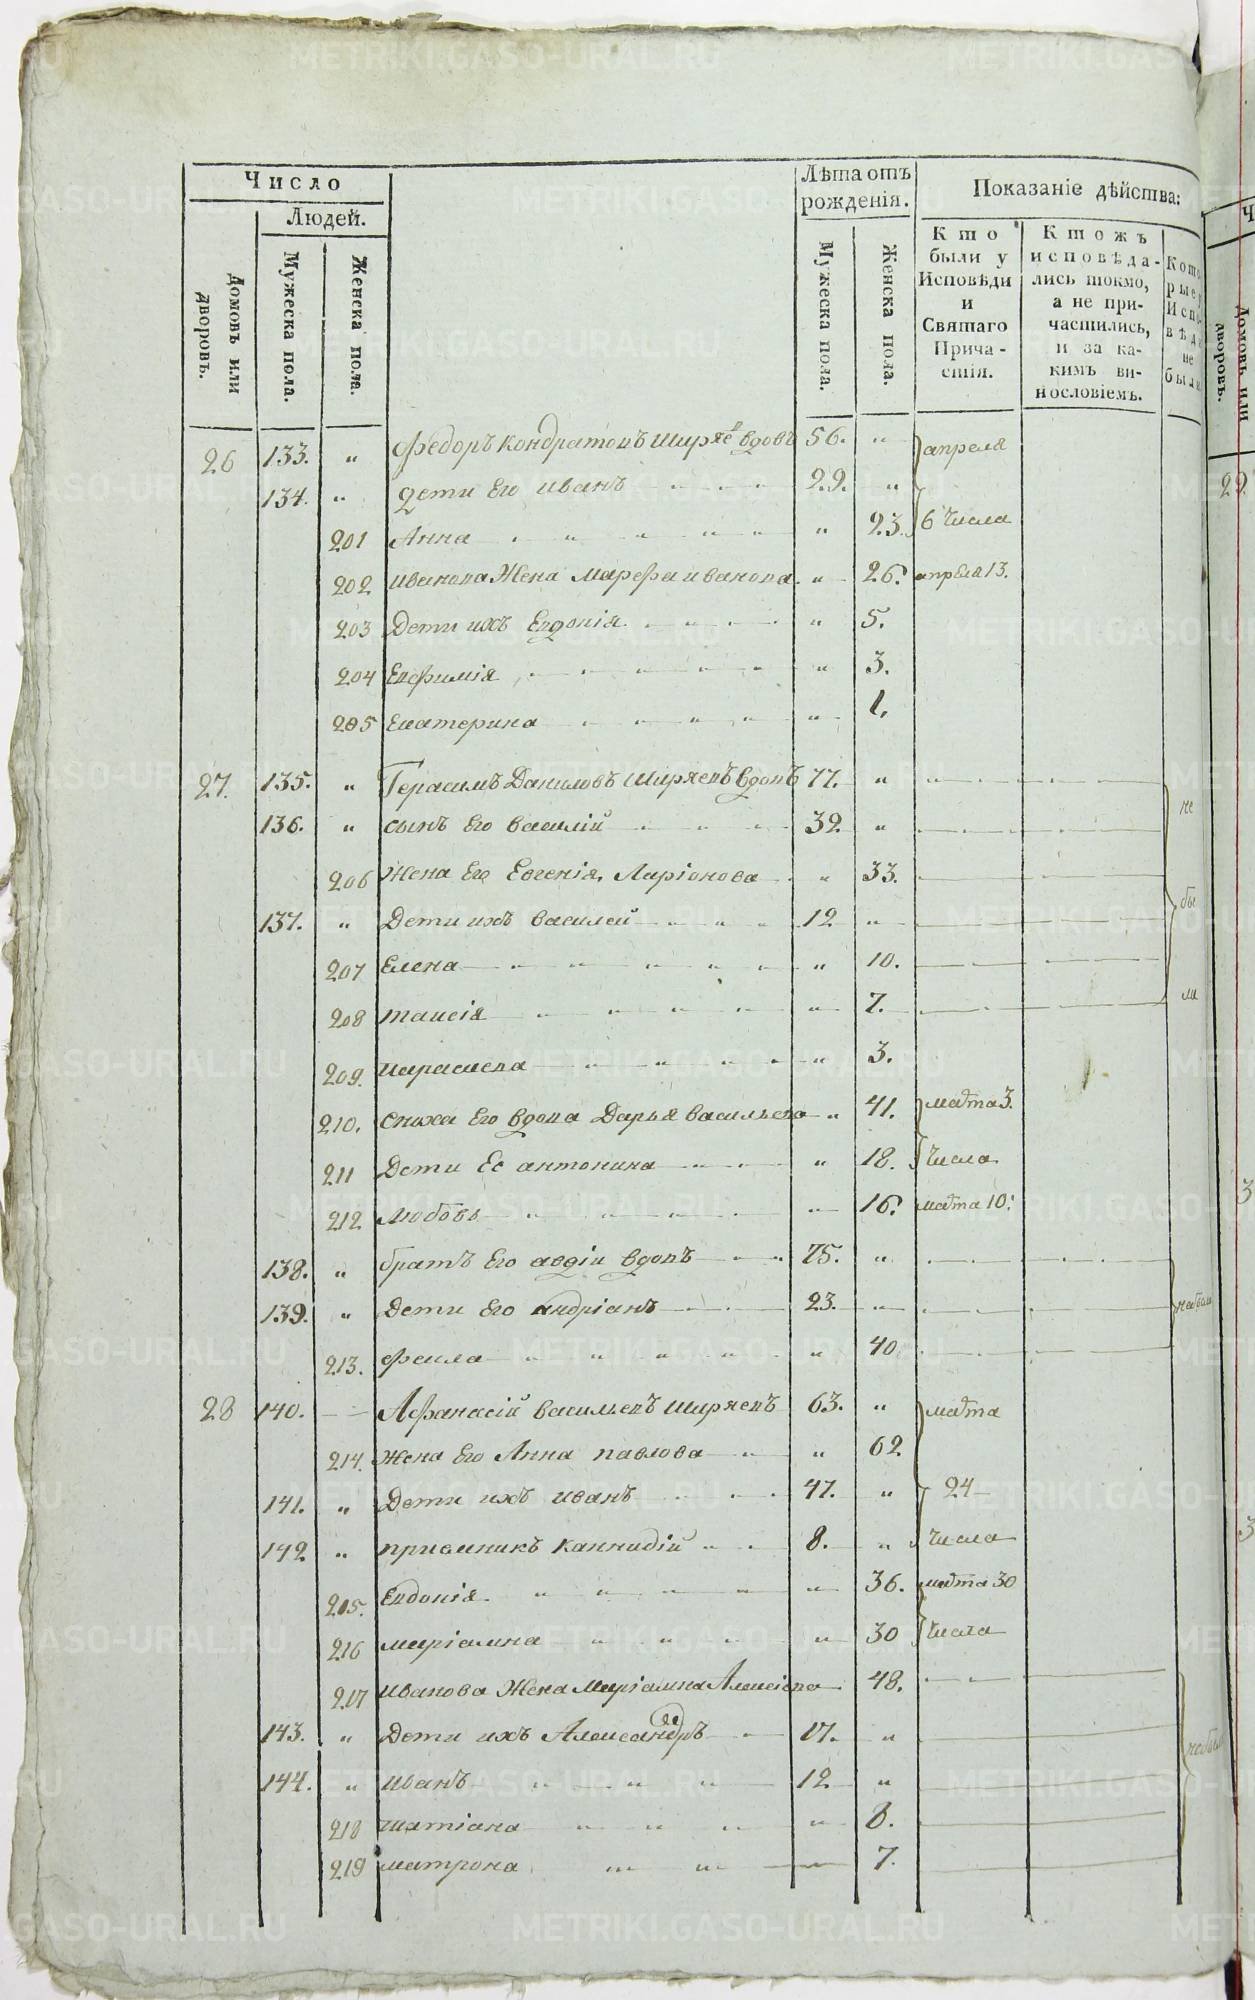 Число
Людей.
Домовъ или дворовъ.
Мужеска пола.
Женска пола.
Лѣта отъ рожденія.
Мужеска пола.
Женска пола.
Показаніе дѣйства:
Кто были у Исповѣди и Святаго Причастія.
Ктожъ исповѣдались токмо, а не причастились, и за какимъ винословіемъ.
Которые Исповѣди не были
26 133. „ Федоръ Кондратовъ Ширяе вдовъ 56. „ апреля
134. „ дети Его иванъ 29. „
201 Анна „ 23. 6 числа
202 иванова Жена Марефа иванова „ 26. апреля 13.
203 Дети ихъ Евдокія „ 5.
204 Евфимія „ 3.
205 Екатерина „ 1.
27. 135. „ Герасимъ Даниловъ Ширяевъ вдовъ 77. „
136. „ сынъ Его василій 32 „ не
206 Жена Его Евгенія Ларіонова „ 33.
137. „ Дети ихъ василей 12 „ бы
207 Елена „ 10.
208 таисія „ 7. ли
209. парасиева „ 3.
210. сноха Его вдова Дарья васильева „ 41. марта 3.
211 Дети Ее антонина „ 18. числа
212 любовь „ 16. марта 10.
138. „ братъ Его авдіи вдовъ 75. „
139. „ Дети Его андріанъ 23. „ небыли
213. фекла „ 40
28 140. Афанасій васильевъ Ширяевъ 63. „ марта
214. Жена Его Анна павлова „ 62
141. „ Дети ихъ иванъ 47. „ 24
142 „ приемникъ каннидій 8. „ числа
205. Евдокія „ 36. марта 30
216 маріамна „ 30 числа
217 иванова Жена Маріамна Алексіева 48.
143. „ Дети ихъ Александръ 17. „
144. „ иванъ 12 „ небыли
218 татіана „ 8.
219 матрона 7.
29.
METRIKI.GASO-URAL.RU